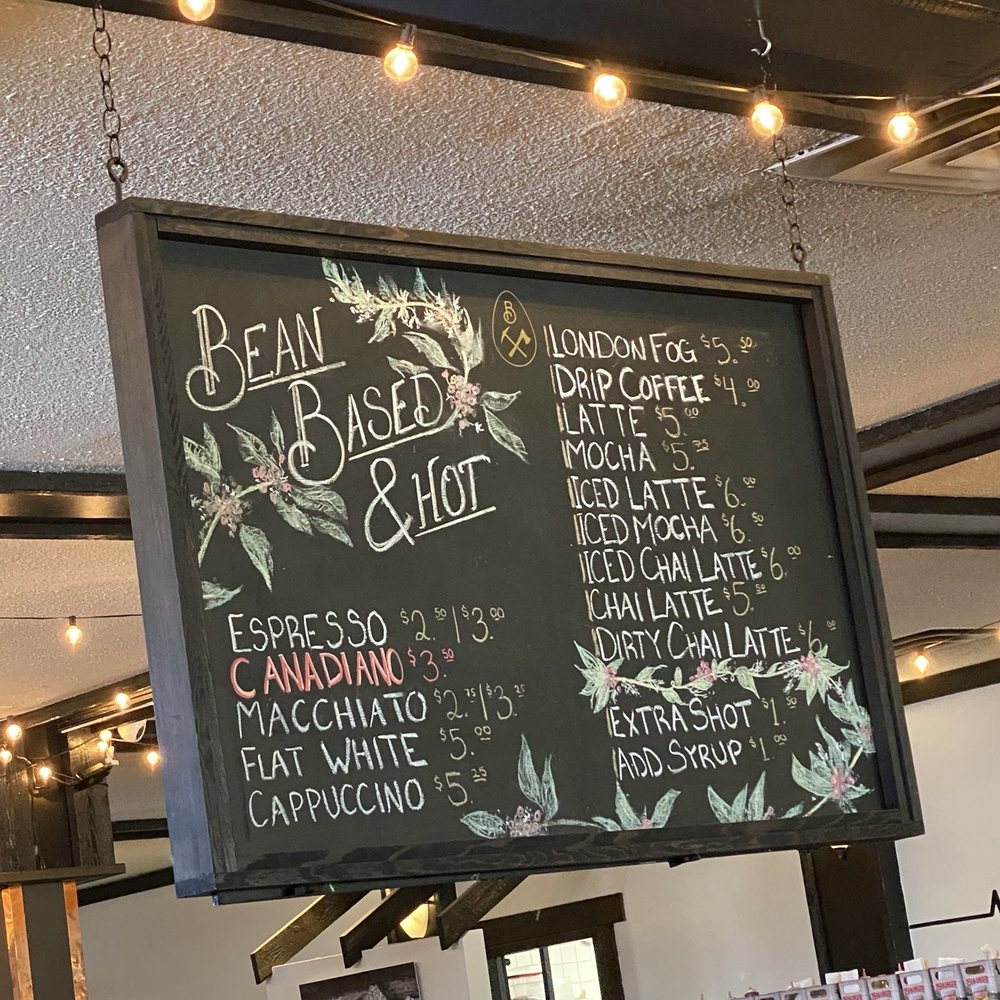 BEAN
BASED
& HOT
ESPRESSO $2.50 | $3.00
CANADIANO $3.50
MACCHIATO $2.75 | $3.25
FLAT WHITE $5.00
CAPPUCCINO $5.25
B
LONDON FOG $5.50
DRIP COFFEE $4.00
LATTE $5.00
MOCHA $5.75
ICED LATTE $6.00
ICED MOCHA $6.50
ICED CHAI LATTE $6.00
CHAI LATTE $5.50
DIRTY CHAI LATTE $6.00
EXTRA SHOT $1.50
ADD SYRUP $1.00